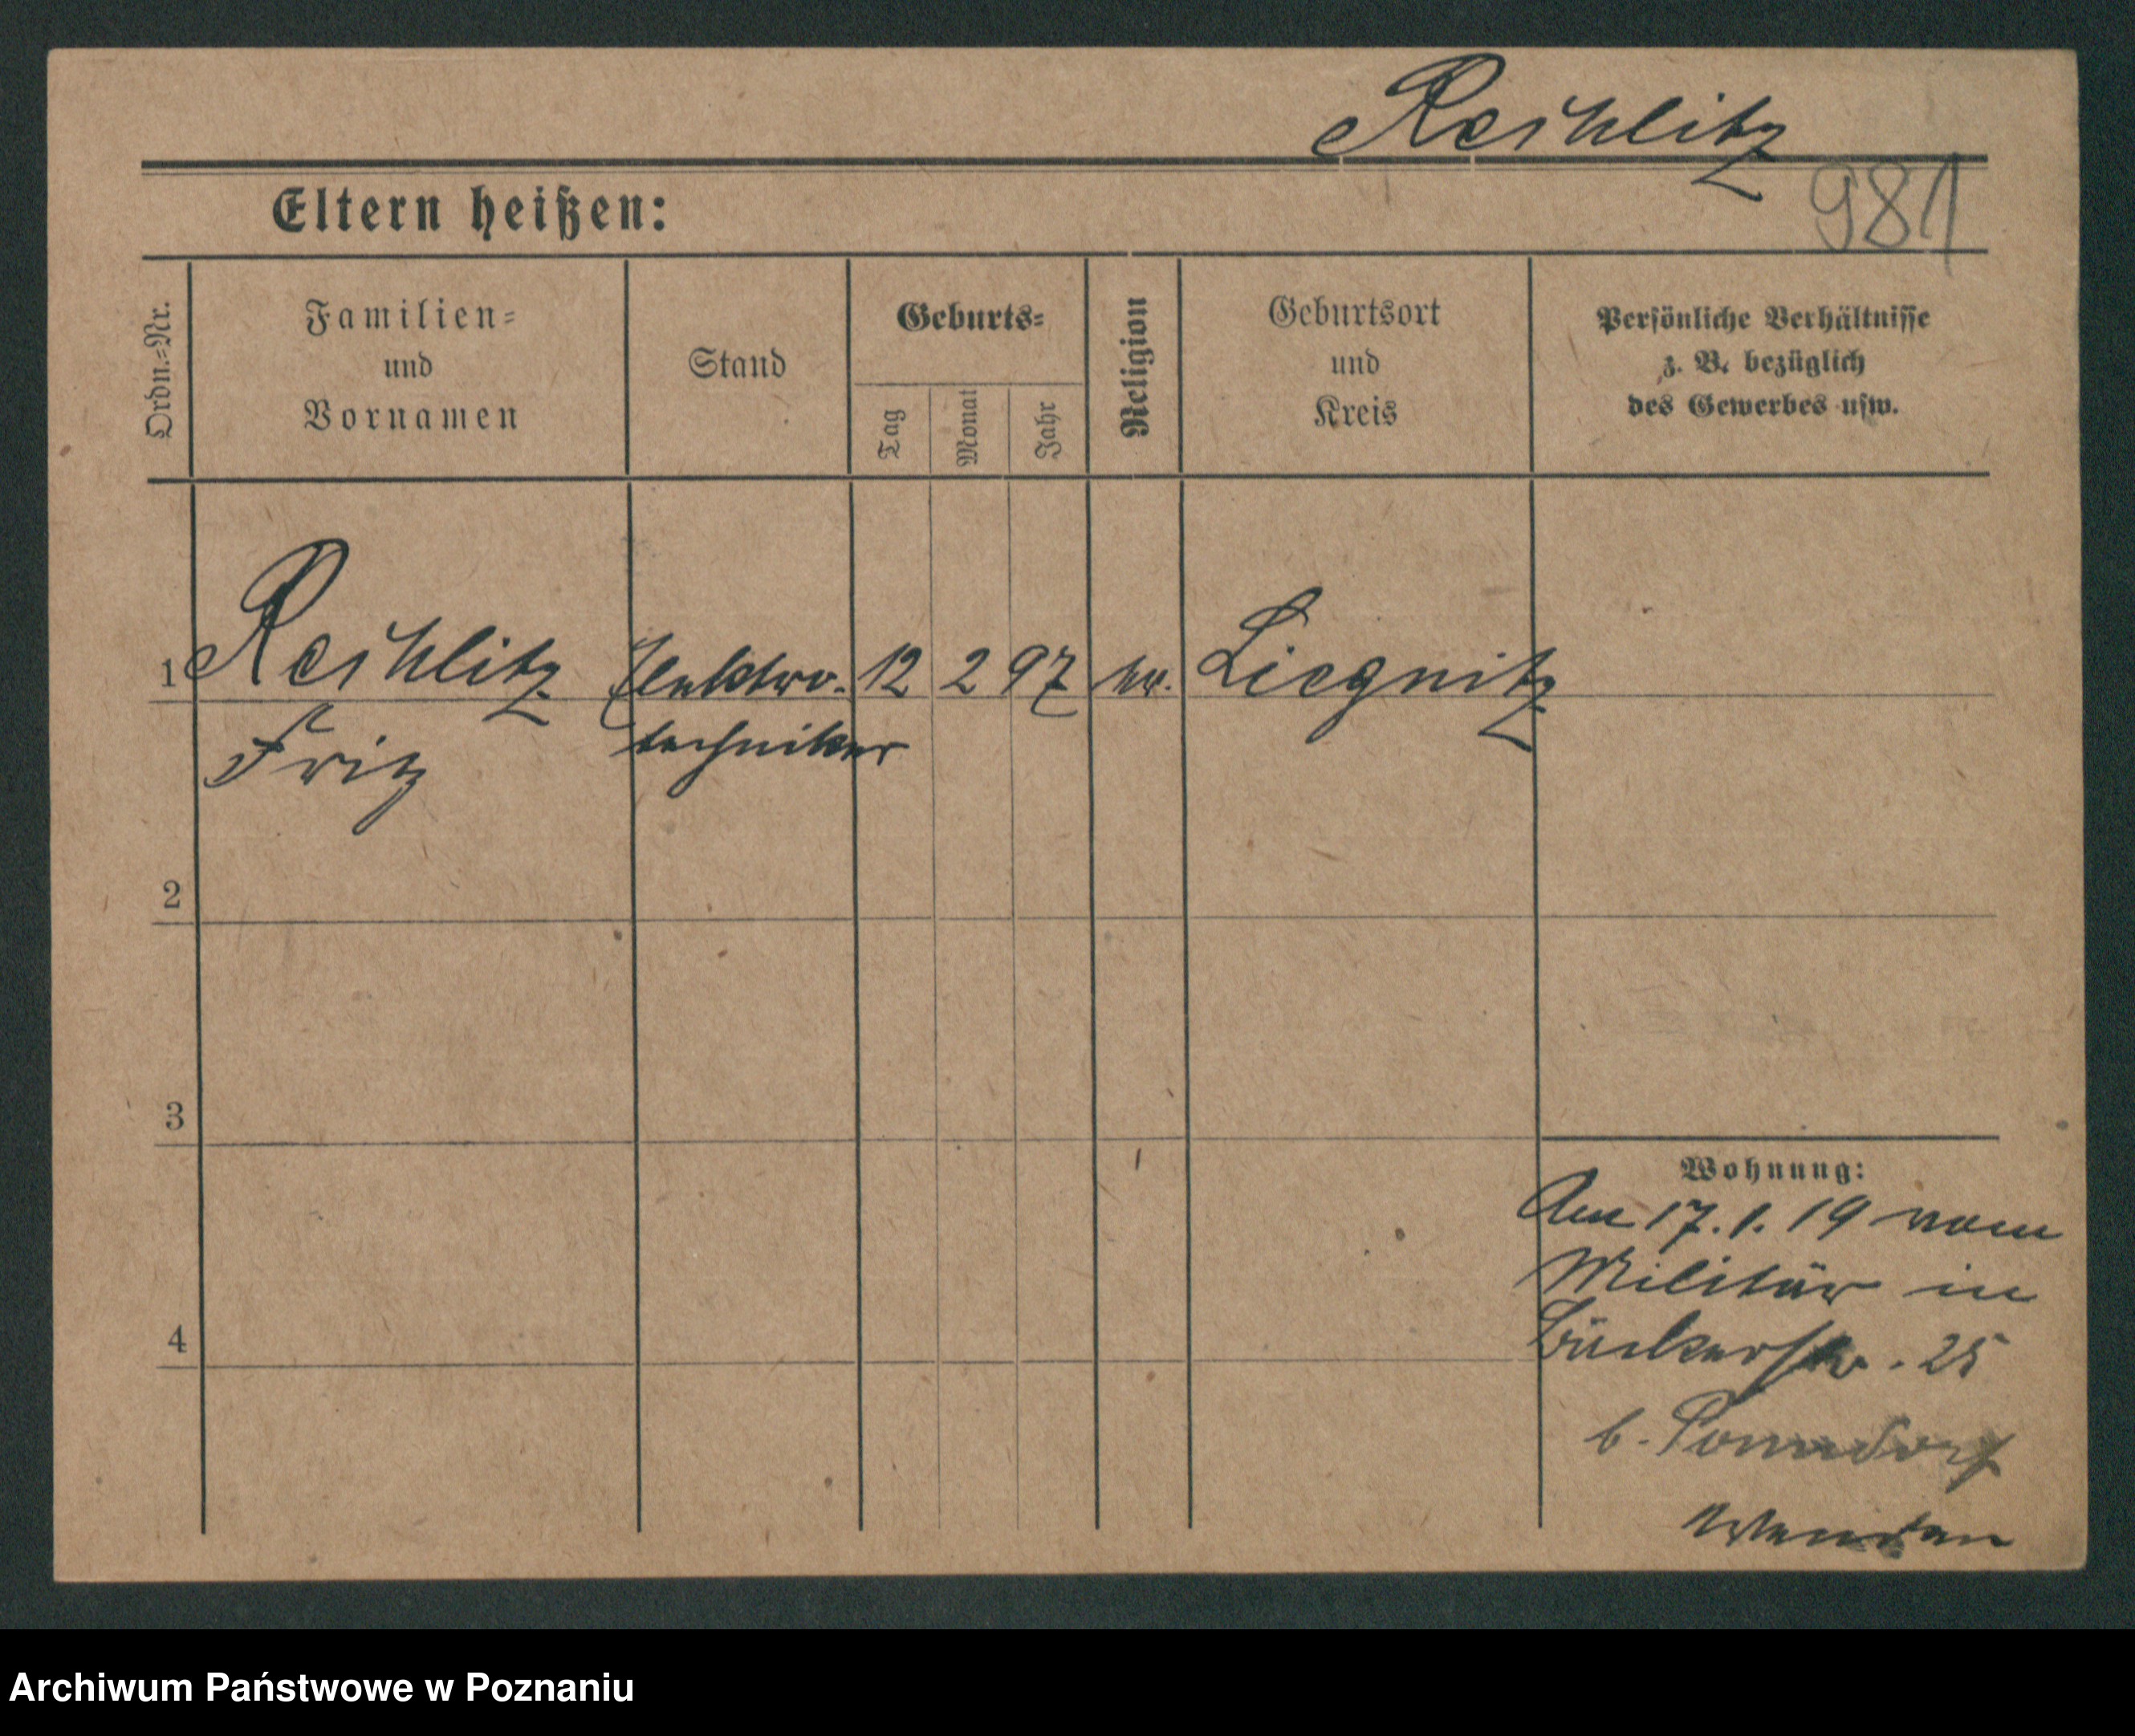 Reichlitz
981
Eltern heißen:
Ordn.=Nr.
Familien=
und
Vornamen
Stand
Geburts=
Tag
Monat
Jahr
Religion
Geburtsort
und
Kreis
Persönliche Verhältnisse
z. B. bezüglich
des Gewerbes usw.
1 Reichlitz Elektro- 12 2 97 ev. Liegnitz
Fritz techniker
2
3
4
Wohnung:
Am 17.1.19 vom
Militär in
Bäckerstr. 25
b.
Archiwum Państwowe w Poznaniu